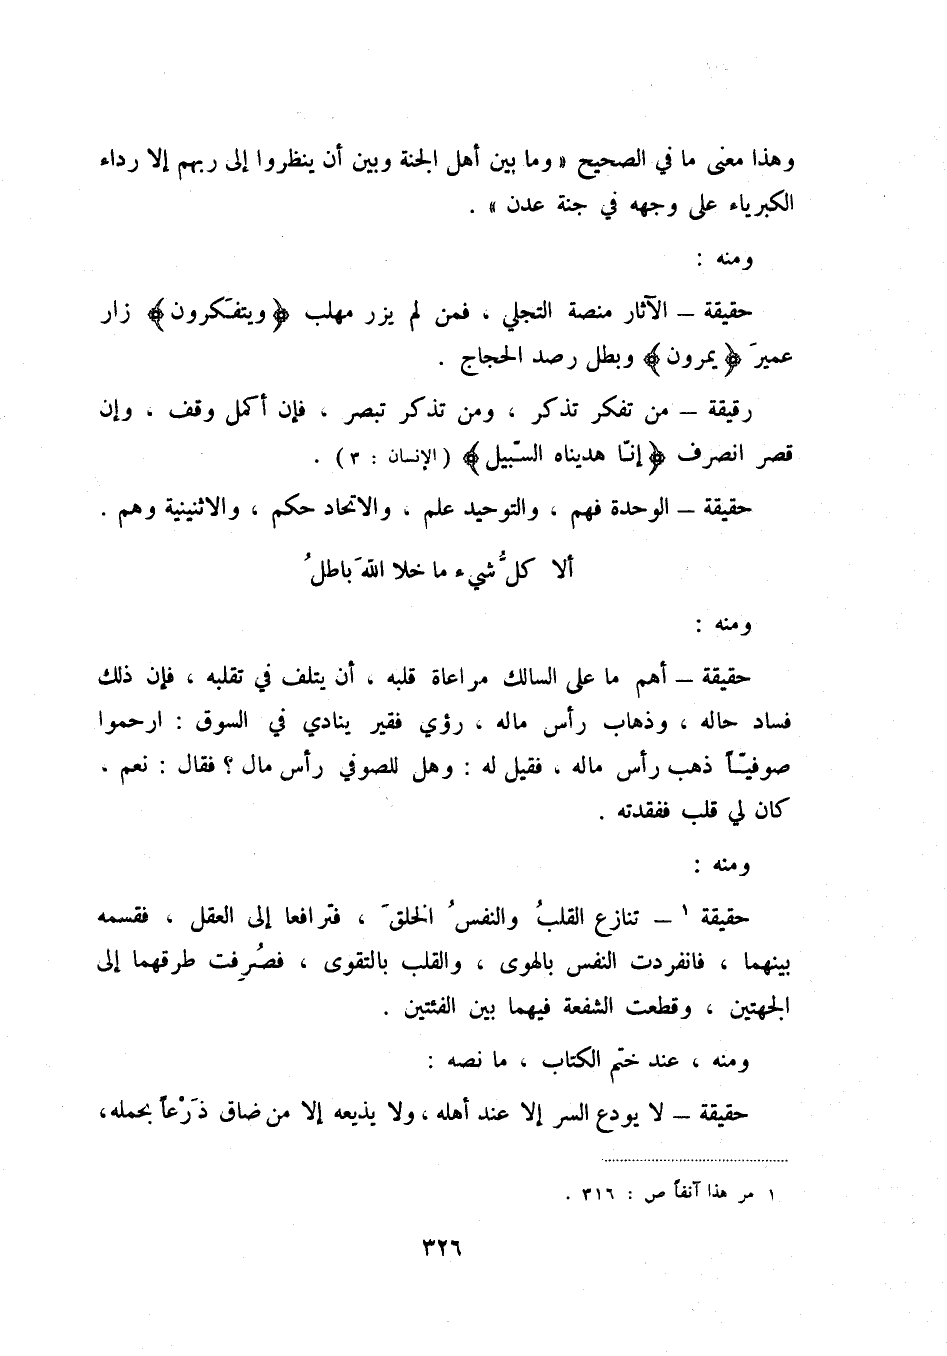 وهذا معنى ما في الصحيح « وما بين أهل الجنة وبين أن ينظروا إلى ربهم إلا رداء
الكبرياء على وجهه في جنة عدن » .
ومنه :
حقيقة – الآثار منصة التجلي ، فمن لم يزر مهلب ﴿ ويتفكّرون ﴾ زار
عميرَ ﴿ يمرون ﴾ وبطل رصد الحجاج .
رقيقة – من تفكر تذكر ، ومن تذكر تبصر ، فإن أكمل وقف ، وإن
قصر انصرف ﴿ إنّا هديناه السّبيل ﴾ ( الإنسان : ٣ ) .
حقيقة – الوحدة فهم ، والتوحيد علم ، والاتحاد حكم ، والاثنينية وهم .
ألا كلُّ شيء ما خلا اللهَ باطلُ
ومنه :
حقيقة – أهم ما على السالك مراعاة قلبه ، أن يتلف في تقلبه ، فإن ذلك
فساد حاله ، وذهاب رأس ماله ، رؤي فقير ينادي في السوق : ارحموا
صوفيّاً ذهب رأس ماله ، فقيل له : وهل للصوفي رأس مال ؟ فقال : نعم ،
كان لي قلب ففقدته .
ومنه :
حقيقة ١ – تنازع القلبُ والنفسُ الخلقَ ، فترافعا إلى العقل ، فقسمه
بينهما ، فانفردت النفس بالهوى ، والقلب بالتقوى ، فصُرِفت طرقهما إلى
الجهتين ، وقطعت الشفعة فيهما بين الفئتين .
ومنه ، عند ختم الكتاب ، ما نصه :
حقيقة – لا يودع السر إلا عند أهله ، ولا يذيعه إلا من ضاق ذَرْعاً بحمله ،
١ مر هذا آنفاً ص : ٣١٦ .
٣٢٦